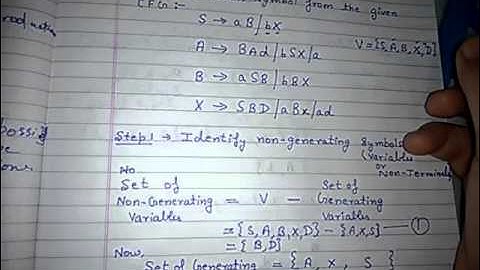 symbol from the given
CFG :-
S → aB/bX
A → BAd/bSX/a
V = {S, A, B, X, D}
B → aSB/bBX
X → SBD/aBx/ad
Step 1 → Identify non-generating Symbols
(Variables
or
Non-Terminals
No
Set of
Non-Generating = V - Set of
Generating
Variables
Variables
= {S, A, B, X, D} - {A, X, S} — ①
= {B, D}
Now,
Set of Generating = {A, X, S}